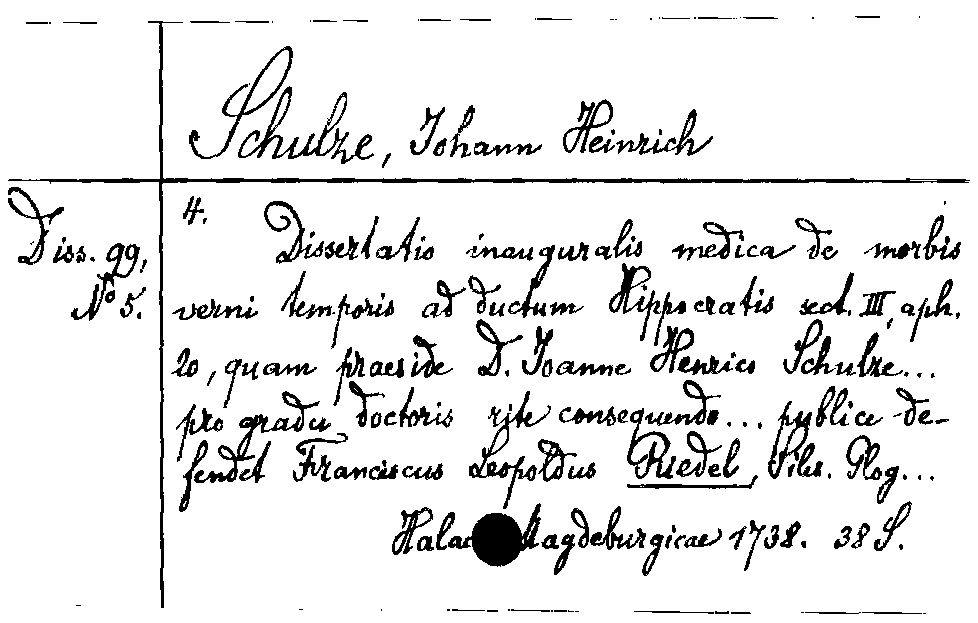 Schulze, Johann Heinrich
Diss. 99,
No 5.
4.
Dissertatio inauguralis medica de morbis
verni temporis ad ductum Hippocratis sect. III, aph.
20, quam praeside D. Joanne Henrico Schulze...
pro gradu doctoris rite consequendo... publice de-
fendet Franciscus Leopoldus Riedel, Siles. Glog...
Halae Magdeburgicae 1738. 38 S.